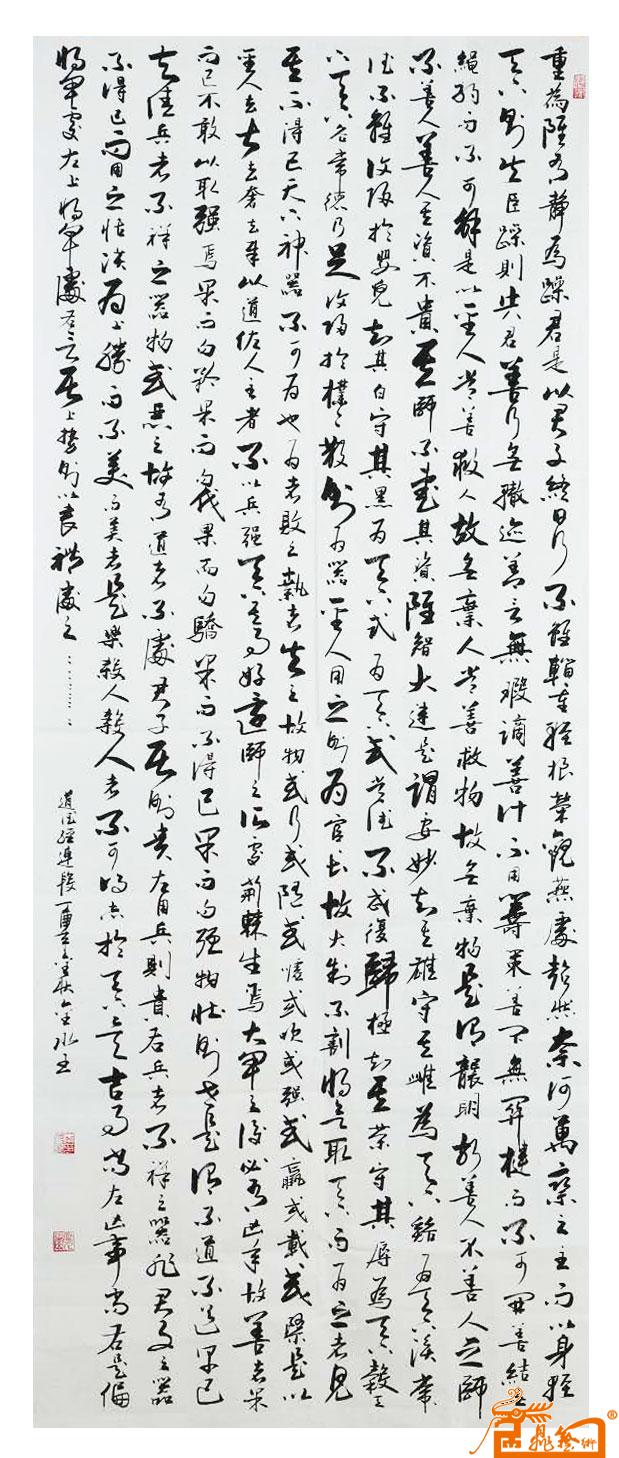 重為雖有靜為躁君是以君子終日行不離輜重輕根榮觀燕處超然奈何萬乘之主而以身輕
天下則失臣躁則失君善行無轍迹善言無瑕謫善計不用籌策善閉無關楗而不可開善結無
繩約而不可解是以聖人常善救人故無棄人常善救物故無棄物是謂襲明故善人不善人之師
不善人善人之資不貴其師不愛其資雖智大迷是謂要妙知其雄守其雌為天下谿為天下溪常
德不離復歸於嬰兒知其白守其黑為天下式為天下式常德不忒復歸極知其榮守其辱為天下穀為
天下谷常德乃足復歸於樸樸散則為器聖人用之則為官長故大制不割將欲取天下而為之者見
其不得已天下神器不可為也為者敗之執者失之故物或行或隨或噓或吹或強或羸或載或隳是以
聖人去甚去奢去泰以道佐人主者不以兵強天下其事好還師之所處荊棘生焉大軍之後必有凶年故善者果
而已不敢以取強焉果而勿矜果而勿伐果而勿驕果而不得已果而勿強物壯則老是謂不道不道早已
夫佳兵者不祥之器物或惡之故有道者不處君子居則貴左用兵則貴右兵者不祥之器非君子之器
不得已而用之恬淡為上勝而不美而美者是樂殺人殺人者不可得志於天下矣吉事尚左凶事尚右是偏
將軍處左上將軍處右言居上勢則以喪禮處之…………
道德經連段丁酉金秋金水書